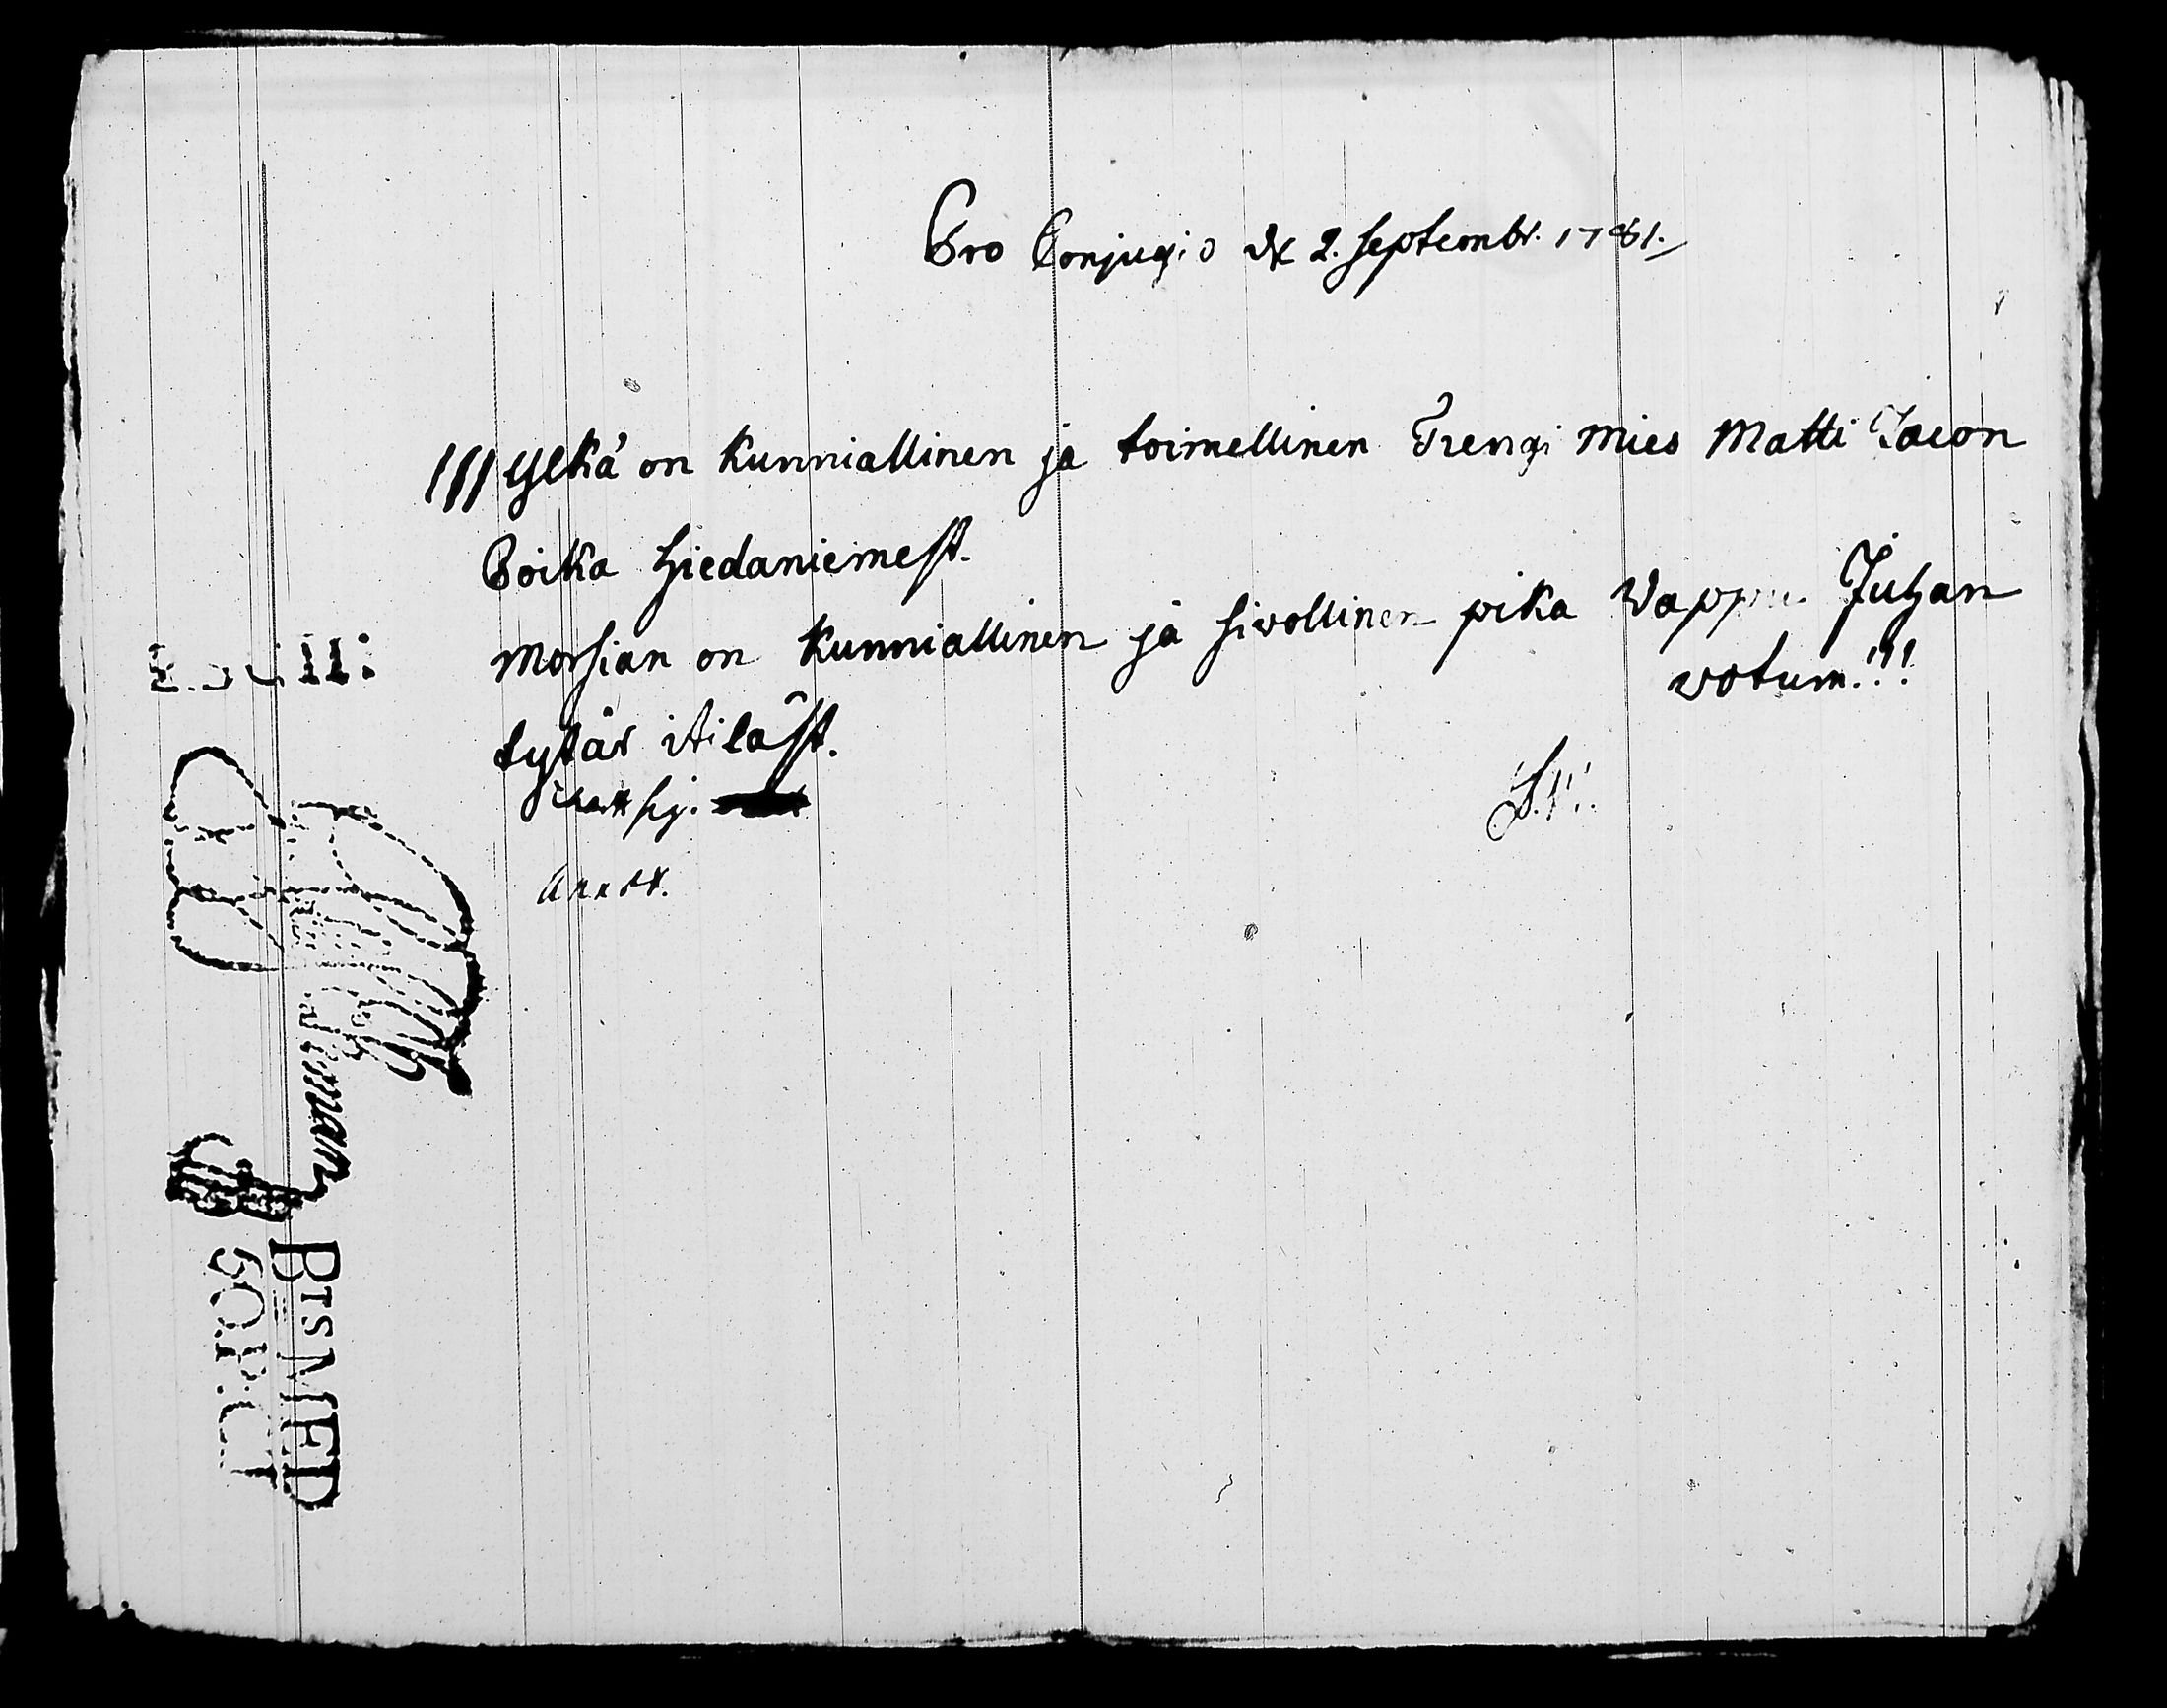 Pro Conjugio d. 2. Septembr. 1781.
Ylkä on Kunniallinen ja toimellinen Trengi mies Matti Jacon
Poika Hiedaniemest.
Morsian on Kunniallinen ja Sivollinen pika Wappu Juhan
votum!!!
tytär itiläst.
S.V.
man
BTSMED